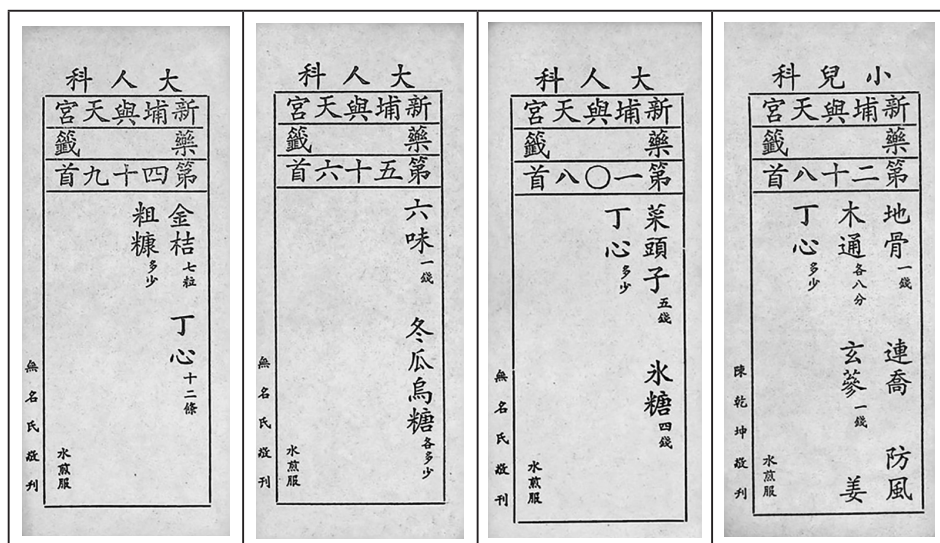 大人科
新埔與天宮
藥籤
第四十九首
金桔七粒 丁心十二條
粗糠多少
水煎服
無名氏敬刊
大人科
新埔與天宮
藥籤
第五十六首
六味一錢 冬瓜烏糖各多少
水煎服
無名氏敬刊
大人科
新埔與天宮
藥籤
第一〇八首
菜頭子五錢 氷糖四錢
丁心多少
水煎服
無名氏敬刊
小兒科
新埔與天宮
藥籤
第二十八首
地骨一錢 連喬 防風
木通各八分 玄蔘一錢 姜
丁心多少
水煎服
陳乾坤敬刊